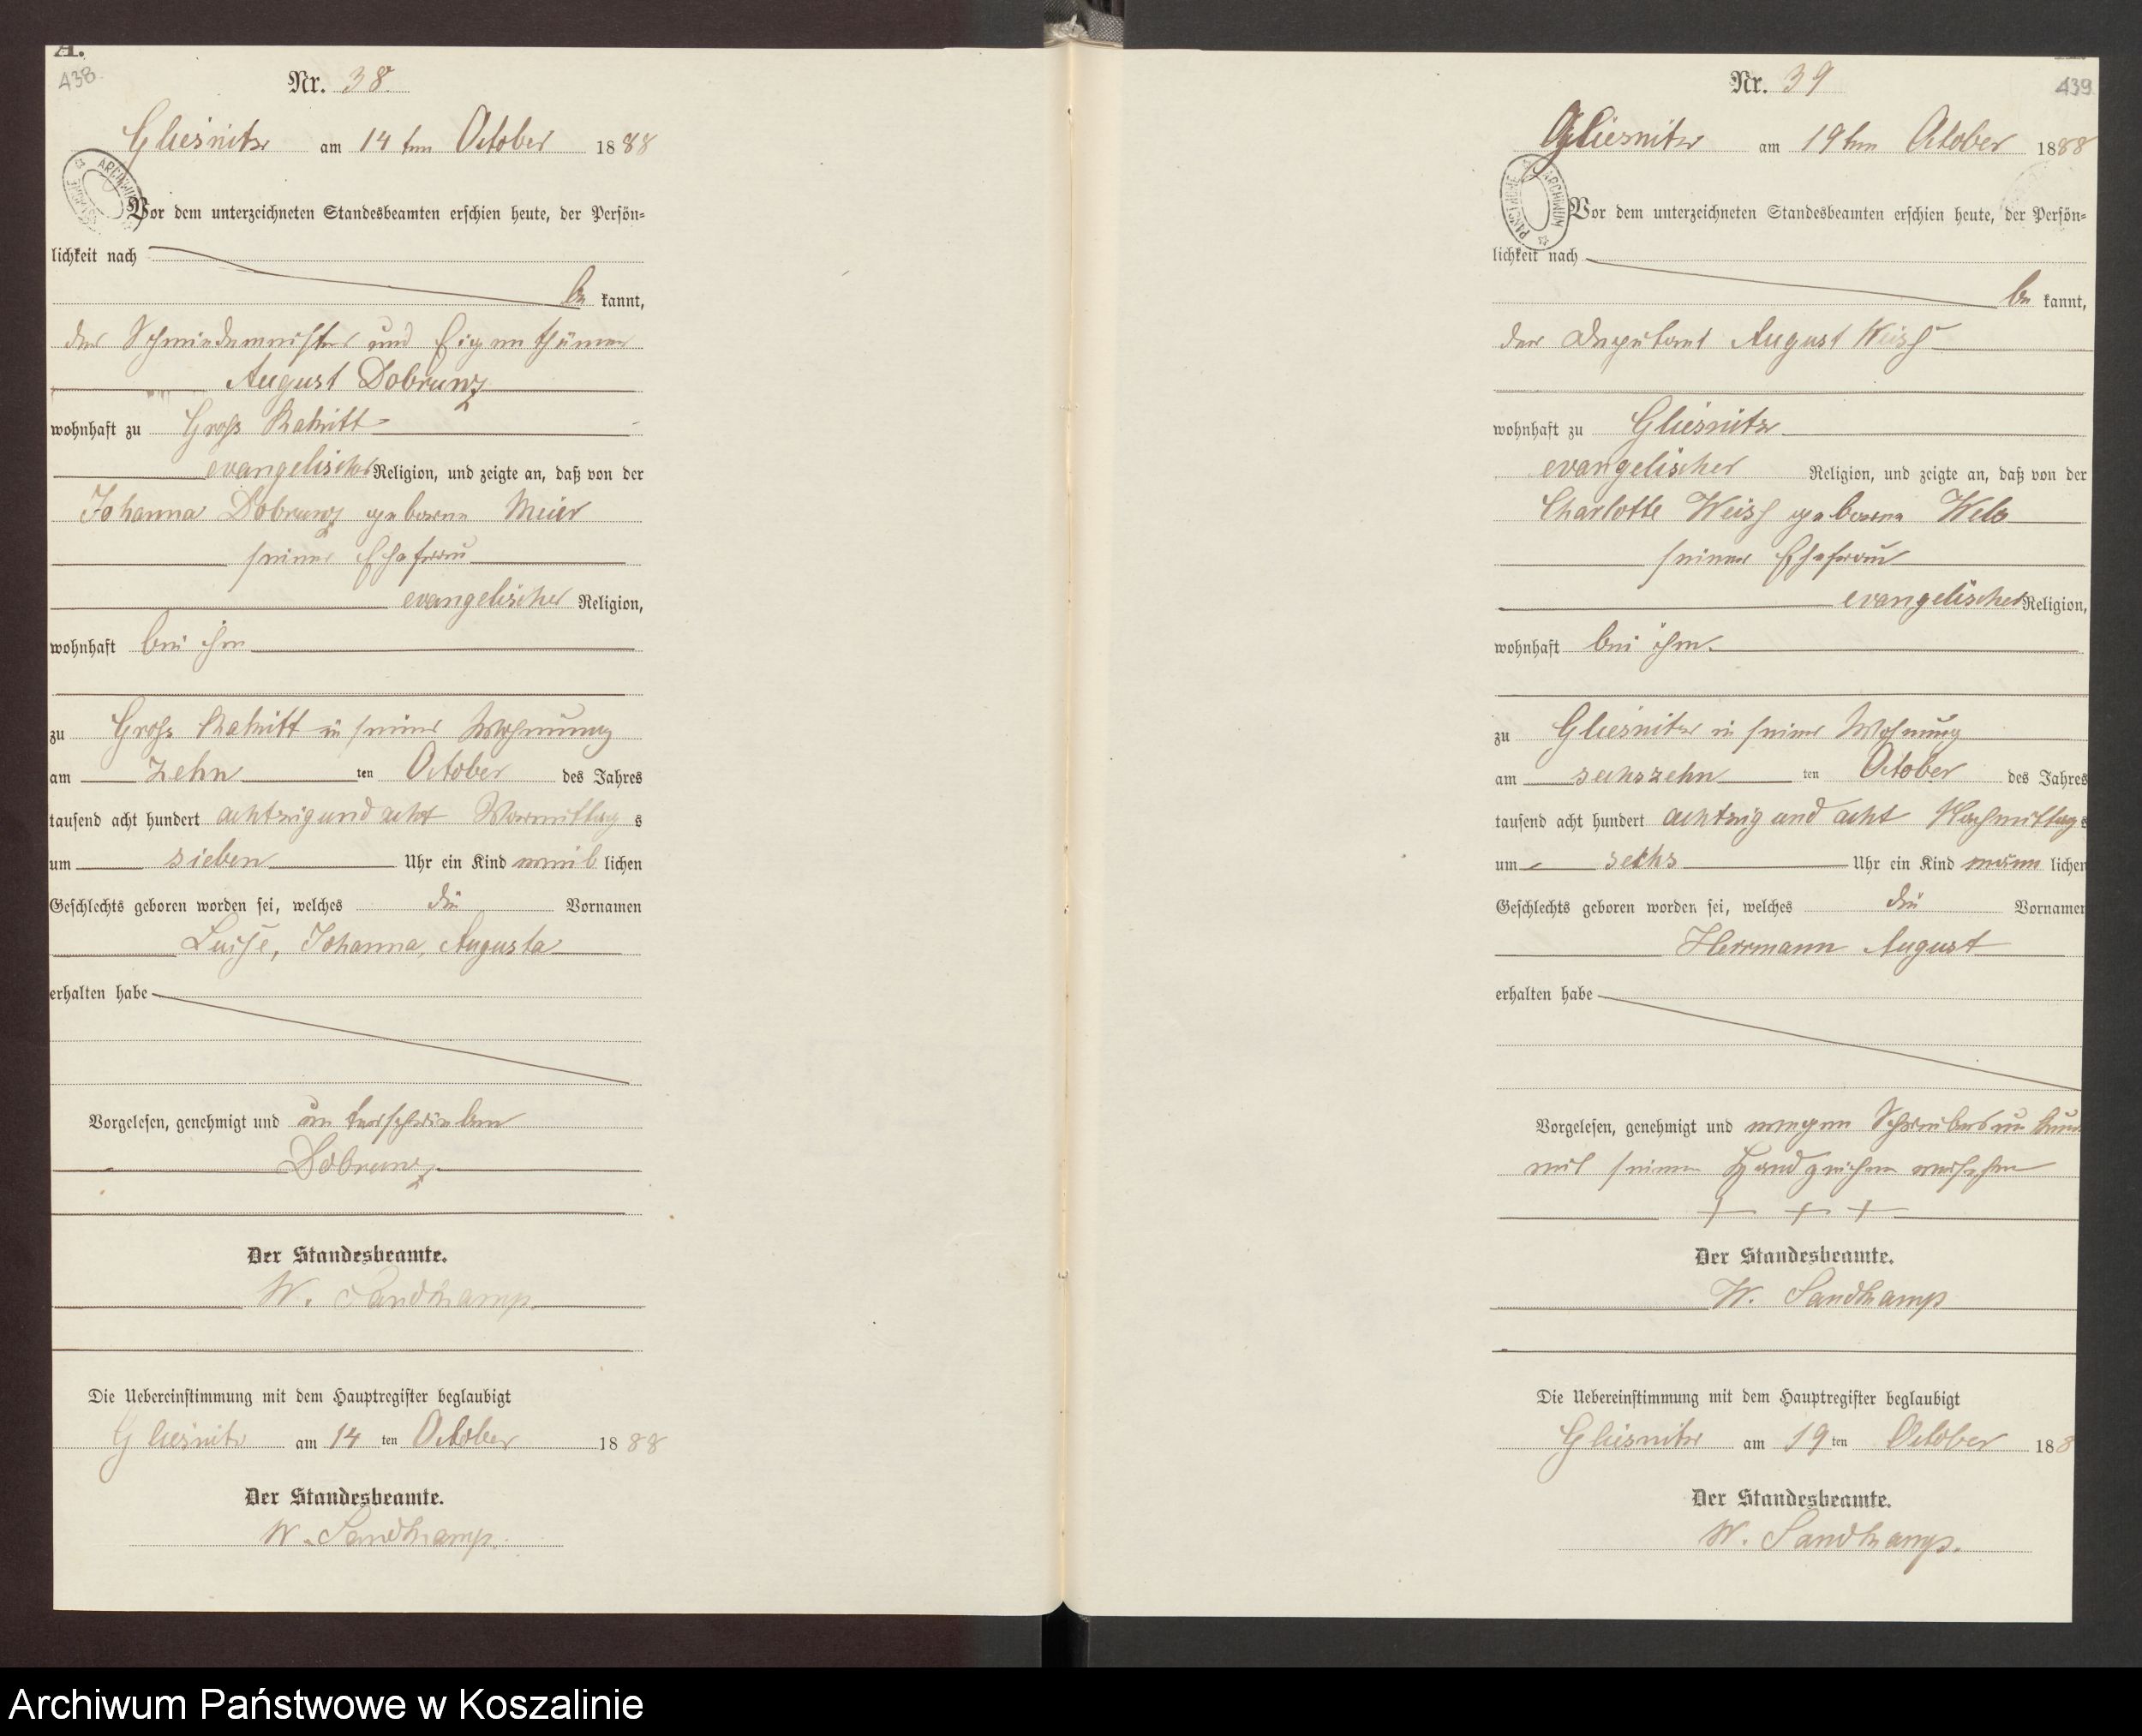 A.
438.
Nr. 38.
Gliesnitz am 14ten October 1888
Vor dem unterzeichneten Standesbeamten erschien heute, der Persön-
lichkeit nach
be kannt,
der Schmiedemeister und Eigenthümer
August Dobrunz
wohnhaft zu Groß Rakitt
evangelischer Religion, und zeigte an, daß von der
Johanna Dobrunz geborene Meier
seiner Ehefrau
evangelischer Religion,
wohnhaft bei ihm
zu Groß Rakitt in seiner Wohnung
am zehn ten October des Jahres
tausend acht hundert achtzig und acht Vormittag s
um sieben Uhr ein Kind weib lichen
Geschlechts geboren worden sei, welches die Vornamen
Luise, Johanna, Augusta
erhalten habe
Vorgelesen, genehmigt und unterschrieben
Dobrunz
Der Standesbeamte.
W. Sandkamp
Die Uebereinstimmung mit dem Hauptregister beglaubigt
Gliesnitz am 14 ten October 1888
Der Standesbeamte.
W. Sandkamp.
439
Nr. 39
Gliesnitz am 19ten October 1888
ARCHIWUM PAŃSTWOWE
Vor dem unterzeichneten Standesbeamten erschien heute, der Persön-
lichkeit nach
be kannt,
der Deputant August Weiß
wohnhaft zu Gliesnitz
evangelischer Religion, und zeigte an, daß von der
Charlotte Weiß geborene
seiner Ehefrau
evangelischer Religion,
wohnhaft bei ihm.
zu Gliesnitz in seiner Wohnung
am sechszehn ten October des Jahres
tausend acht hundert achtzig und acht Nachmittag s
um sechs Uhr ein Kind männ lichen
Geschlechts geboren worden sei, welches die Vornamen
Herrmann August
erhalten habe
Vorgelesen, genehmigt und wegen Schreibens
mit seinem Handzeichen versehen
+ + +
Der Standesbeamte.
W. Sandkamp
Die Uebereinstimmung mit dem Hauptregister beglaubigt
Gliesnitz am 19 ten October 188
Der Standesbeamte.
W. Sandkamp.
Archiwum Państwowe w Koszalinie